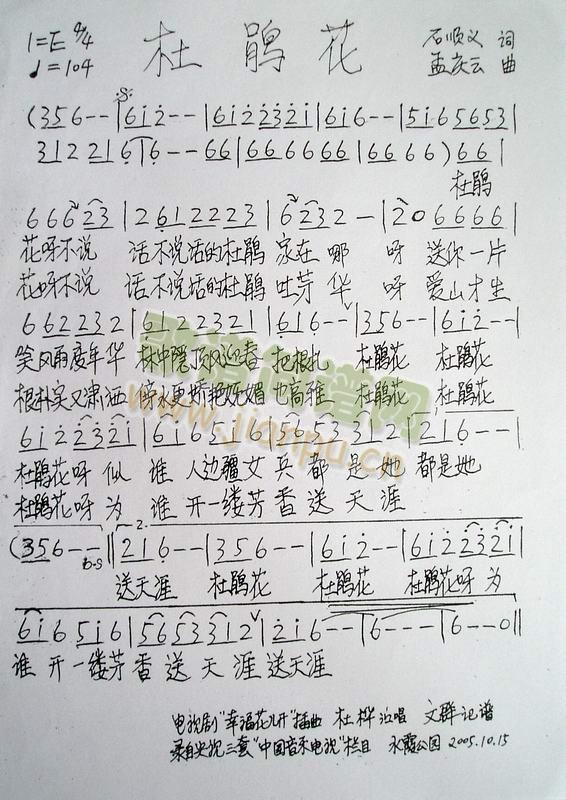 1=E 4/4 杜鹃花 石顺义 词
♩=104 孟庆云 曲
(356-- | 6i2-- | 6i2232i | 6i6-- | 5i65653 |
3122216 | 6---66 | 6666666 | 6666) 66 |
杜鹃
66623 | 26122223 | 6232- | 206666 |
花呀不说 话不说话的杜鹃 家在哪 呀 送你一片
花呀不说 话不说话的杜鹃 吐芳华 呀 爱山才生
笑风雨度年华 林中 顶风迎春 把根扎 杜鹃花 杜鹃花
根朴实又潇洒 傍水更娇艳妩媚 也高雅 杜鹃花 杜鹃花
杜鹃花呀 似 谁 人边疆女兵都是她 都是她
杜鹃花呀 为 谁 开一缕芳香送天涯
(356-- || 216-- | 356-- | 6i2-- | 6i2232i |
D.S
送天涯 杜鹃花 杜鹃花 杜鹃花呀 为
6i65i6 | 5653312 | 2i6-- | 6--- | 6--0 ||
谁 开一缕芳香送天涯 送天涯
电视剧"幸福花儿开"插曲 杜桦演唱 文群记谱
录自央视三套"中国音乐电视"栏目 永霞公园 2005.10.15
www.jianpu.cn